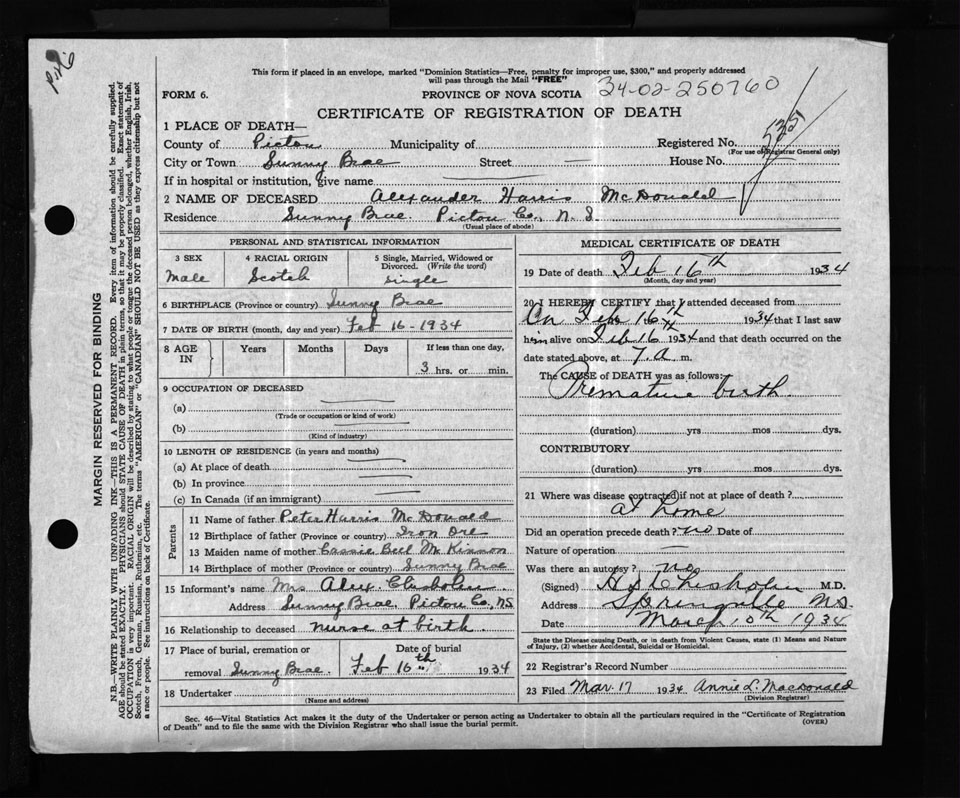 This form if placed in an envelope, marked "Dominion Statistics—Free, penalty for improper use, $300," and properly addressed
will pass through the Mail "FREE"
FORM 6. PROVINCE OF NOVA SCOTIA 34-02-250760
CERTIFICATE OF REGISTRATION OF DEATH
1 PLACE OF DEATH—
County of Pictou Municipality of Registered No. 535
(For use of Registrar General only)
City or Town Sunny Brae Street House No.
If in hospital or institution, give name
2 NAME OF DECEASED Alexander Harris McDonald
Residence Sunny Brae. Pictou Co., N. S.
(Usual place of abode)
PERSONAL AND STATISTICAL INFORMATION
3 SEX 4 RACIAL ORIGIN 5 Single, Married, Widowed or
Divorced. (Write the word)
Male Scotch Single
6 BIRTHPLACE (Province or country) Sunny Brae
7 DATE OF BIRTH (month, day and year) Feb 16-1934
8 AGE IN Years Months Days If less than one day,
3 hrs. or min.
9 OCCUPATION OF DECEASED
(a)
(Trade or occupation or kind of work)
(b)
(Kind of industry)
10 LENGTH OF RESIDENCE (in years and months)
(a) At place of death
(b) In province
(c) In Canada (if an immigrant)
Parents
11 Name of father Peter Harris McDonald
12 Birthplace of father (Province or country) Iron Ore
13 Maiden name of mother Cassie Bell McKinnon
14 Birthplace of mother (Province or country) Sunny Brae
15 Informant's name Mrs Alex Chisholm
Address Sunny Brae, Pictou Co, NS
16 Relationship to deceased nurse at birth.
17 Place of burial, cremation or Date of burial
removal Sunny Brae Feb 16th 1934
18 Undertaker
(Name and address)
MEDICAL CERTIFICATE OF DEATH
19 Date of death Feb 16th 1934
(Month, day and year)
20 I HEREBY CERTIFY that I attended deceased from
On Feb 16th 1934 that I last saw
him alive on Feb 16th 1934 and that death occurred on the
date stated above, at 7. a. m.
The CAUSE of DEATH was as follows:
Premature birth.
(duration) yrs mos dys.
CONTRIBUTORY
(duration) yrs mos dys.
21 Where was disease contracted if not at place of death?
at home
Did an operation precede death? no Date of
Nature of operation
Was there an autopsy? no
(Signed) Chisholm M.D.
Address Springville N.S.
Date March 10th 1934
State the Disease causing Death, or in death from Violent Causes, state (1) Means and Nature
of Injury, (2) whether Accidental, Suicidal or Homicidal.
22 Registrar's Record Number
23 Filed Mar. 17 1934 Annie L. Macdonald
(Division Registrar)
Sec. 46—Vital Statistics Act makes it the duty of the Undertaker or person acting as Undertaker to obtain all the particulars required in the "Certificate of Registration
of Death" and to file the same with the Division Registrar who shall issue the burial permit. (OVER)
MARGIN RESERVED FOR BINDING
N.B.—WRITE PLAINLY WITH UNFADING INK—THIS IS A PERMANENT RECORD. Every item of information should be carefully supplied.
AGE should be stated EXACTLY. PHYSICIANS should STATE CAUSE OF DEATH in plain terms, so that it may be properly classified. Exact statement of
OCCUPATION is very important. RACIAL ORIGIN will be described by stating to what people or tongue the deceased person belonged, whether English, Irish,
Scotch, French, German, Russian, Ruthenian, etc. The terms "AMERICAN" or "CANADIAN" SHOULD NOT BE USED as they express citizenship but not
a race or people. See instructions on back of Certificate.